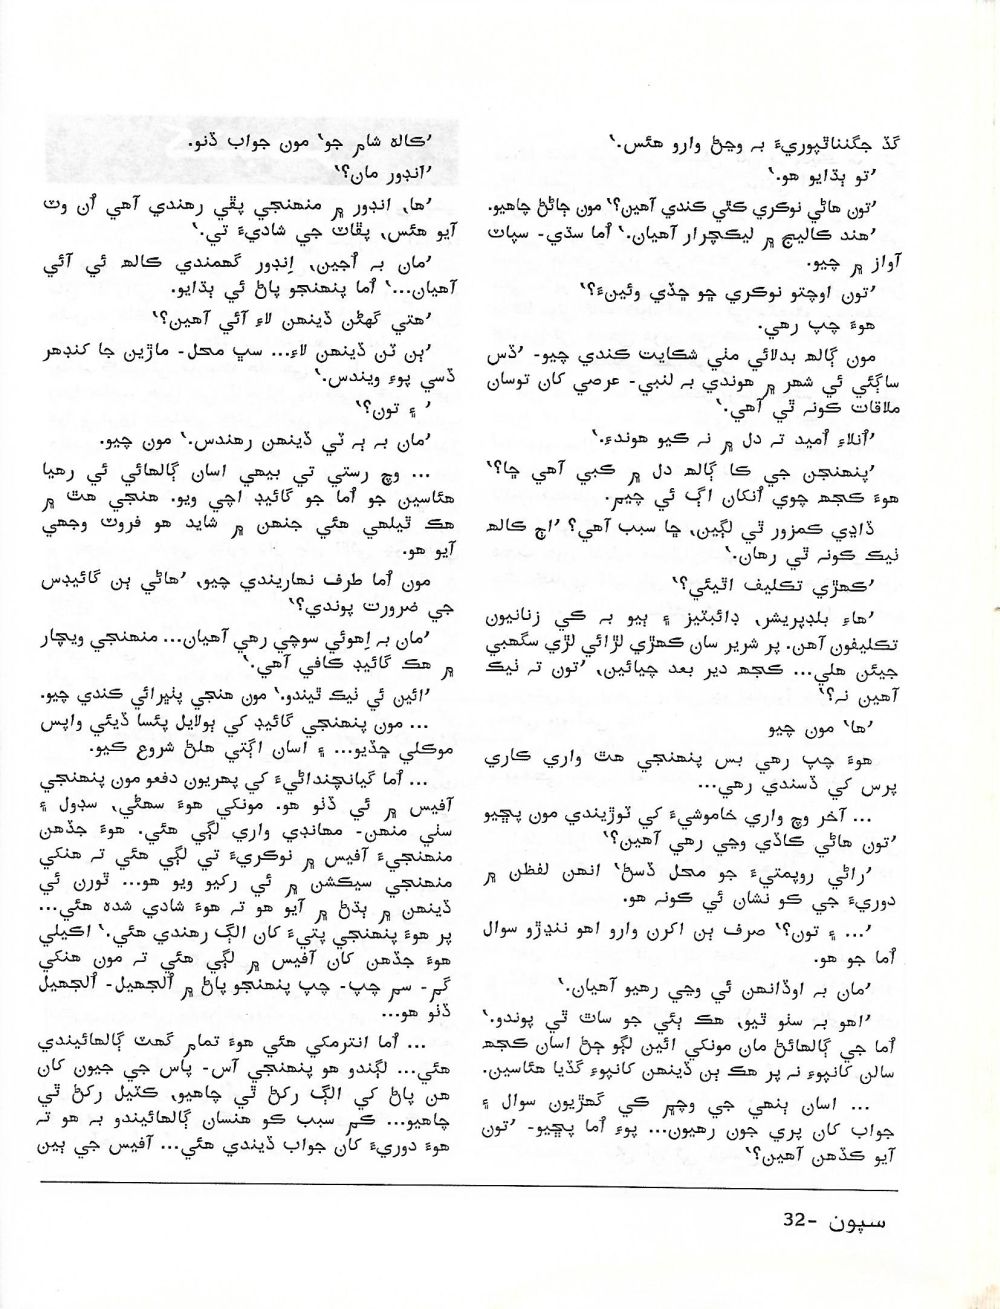 گڏ جگنناٿپوريءَ بہ وڃڻ وارو هئس.‘
’تو ٻڌايو هو.‘
’تون هاڻي نوڪري ڪٿي ڪندي آهين؟‘ مون ڄاڻڻ چاهيو.
’هند ڪاليج ۾ ليڪچرار آهيان.‘ اُما سڌي- سپات
آواز ۾ چيو.
’تون اوچتو نوڪري ڇو ڇڏي وئينءَ؟‘
هوءَ چپ رهي.
مون ڳالھ بدلائي مٺي شڪايت ڪندي چيو- ’ڏس
ساڳئي ئي شهر ۾ هوندي بہ لنبي- عرصي کان توسان
ملاقات ڪونہ ٿي آهي.‘
’اُنلاءِ اُميد تہ دل ۾ نہ ڪيو هوندءِ.‘
’پنهنجن جي ڪا ڳالھ دل ۾ ڪبي آهي ڇا؟‘
هوءَ ڪجھ چوي اُنکان اڳ ئي چيم.
ڏاڍي ڪمزور ٿي لڳين، ڇا سبب آهي؟ ’اڄ ڪالھ
ٺيڪ ڪونہ ٿي رهان.‘
’ڪهڙي تڪليف اٿيئي؟‘
’هاءِ بلڊپريشر، ڊائبٽيز ۽ ٻيو بہ ڪي زنانيون
تڪليفون آهن. پر شرير سان ڪهڙي لڙائي لڙي سگهبي
جيئن هلي... ڪجھ دير بعد چيائين، ’تون تہ ٺيڪ
آهين نہ؟‘
’ها‘ مون چيو
هوءَ چپ رهي بس پنهنجي هٿ واري ڪاري
پرس کي ڏسندي رهي...
... آخر وچ واري خاموشيءَ کي ٽوڙيندي مون پڇيو
’تون هاڻي ڪاڏي وڃي رهي آهين؟‘
’راڻي روپمتيءَ جو محل ڏسڻ‘ انهن لفظن ۾
دوريءَ جي ڪو نشان ئي ڪونہ هو.
’... ۽ تون؟‘ صرف ٻن اکرن وارو اهو ننڍڙو سوال
اُما جو هو.
’مان بہ اوڏانهن ئي وڃي رهيو آهيان.‘
’اهو بہ سٺو ٿيو، هڪ ٻئي جو ساٿ ٿي پوندو.‘
اُما جي ڳالهائڻ مان مونکي ائين لڳو ڄڻ اسان ڪجھ
سالن کانپوءِ نہ پر هڪ ٻن ڏينهن کانپوءِ گڏيا هئاسين.
... اسان ٻنهي جي وچ۾ ڪي گهڙيون سوال ۽
جواب کان پري جون رهيون... پوءِ اُما پڇيو- ’تون
آيو ڪڏهن آهين؟‘
’ڪالھ شام جو‘ مون جواب ڏنو.
’انڊور مان؟‘
’ها، انڊور ۾ منهنجي پڦي رهندي آهي اُن وٽ
آيو هئس، پڦاٽ جي شاديءَ تي.‘
’مان بہ اُجين، اِنڊور گهمندي ڪالھ ئي آئي
آهيان...‘ اُما پنهنجو پاڻ ئي ٻڌايو.
’هتي گهڻن ڏينهن لاءِ آئي آهين؟‘
’ٻن ٽن ڏينهن لاءِ... سڀ محل- ماڙين جا کنڊهر
ڏسي پوءِ ويندس.‘
’ ۽ تون؟‘
’مان بہ ٻہ ٽي ڏينهن رهندس.‘ مون چيو.
... وچ رستي تي بيهي اسان ڳالهائي ئي رهيا
هئاسين جو اُما جو گائيڊ اچي ويو. هنجي هٿ ۾
هڪ ٿيلهي هئي جنهن ۾ شايد هو فروٽ وجهي
آيو هو.
مون اُما طرف نهاريندي چيو، ’هاڻي ٻن گائيڊس
جي ضرورت پوندي؟‘
’مان بہ اِهوئي سوچي رهي آهيان... منهنجي ويچار
۾ هڪ گائيڊ ڪافي آهي.‘
’ائين ئي ٺيڪ ٿيندو.‘ مون هنجي پٺڀرائي ڪندي چيو.
... مون پنهنجي گائيڊ کي ٻولايل پئسا ڏيئي واپس
موڪلي ڇڏيو... ۽ اسان اڳتي هلڻ شروع ڪيو.
... اُما گيانچنداڻيءَ کي پهريون دفعو مون پنهنجي
آفيس ۾ ئي ڏٺو هو. مونکي هوءَ سهڻي، سڊول ۽
سٺي منهن- مهانڊي واري لڳي هئي. هوءَ جڏهن
منهنجيءَ آفيس ۾ نوڪريءَ تي لڳي هئي تہ هنکي
منهنجي سيڪشن ۾ ئي رکيو ويو هو... ٿورن ئي
ڏينهن ۾ ٻڌڻ ۾ آيو هو تہ هوءَ شادي شدہ هئي...
پر هوءَ پنهنجي پتيءَ کان الڳ رهندي هئي.‘ اڪيلي
هوءَ جڏهن کان آفيس ۾ لڳي هئي تہ مون هنکي
گم- سم چپ- چپ پنهنجو پاڻ ۾ اُلجهيل- اُلجهيل
ڏٺو هو...
... اُما انترمکي هئي هوءَ تمام گهٽ ڳالهائيندي
هئي... لڳندو هو پنهنجي آس- پاس جي جيون کان
هن پاڻ کي الڳ رکڻ ٿي چاهيو، ڪٽيل رکڻ ٿي
چاهيو... ڪم سبب ڪو هنسان ڳالهائيندو بہ هو تہ
هوءَ دوريءَ کان جواب ڏيندي هئي... آفيس جي ٻين
سپون -32